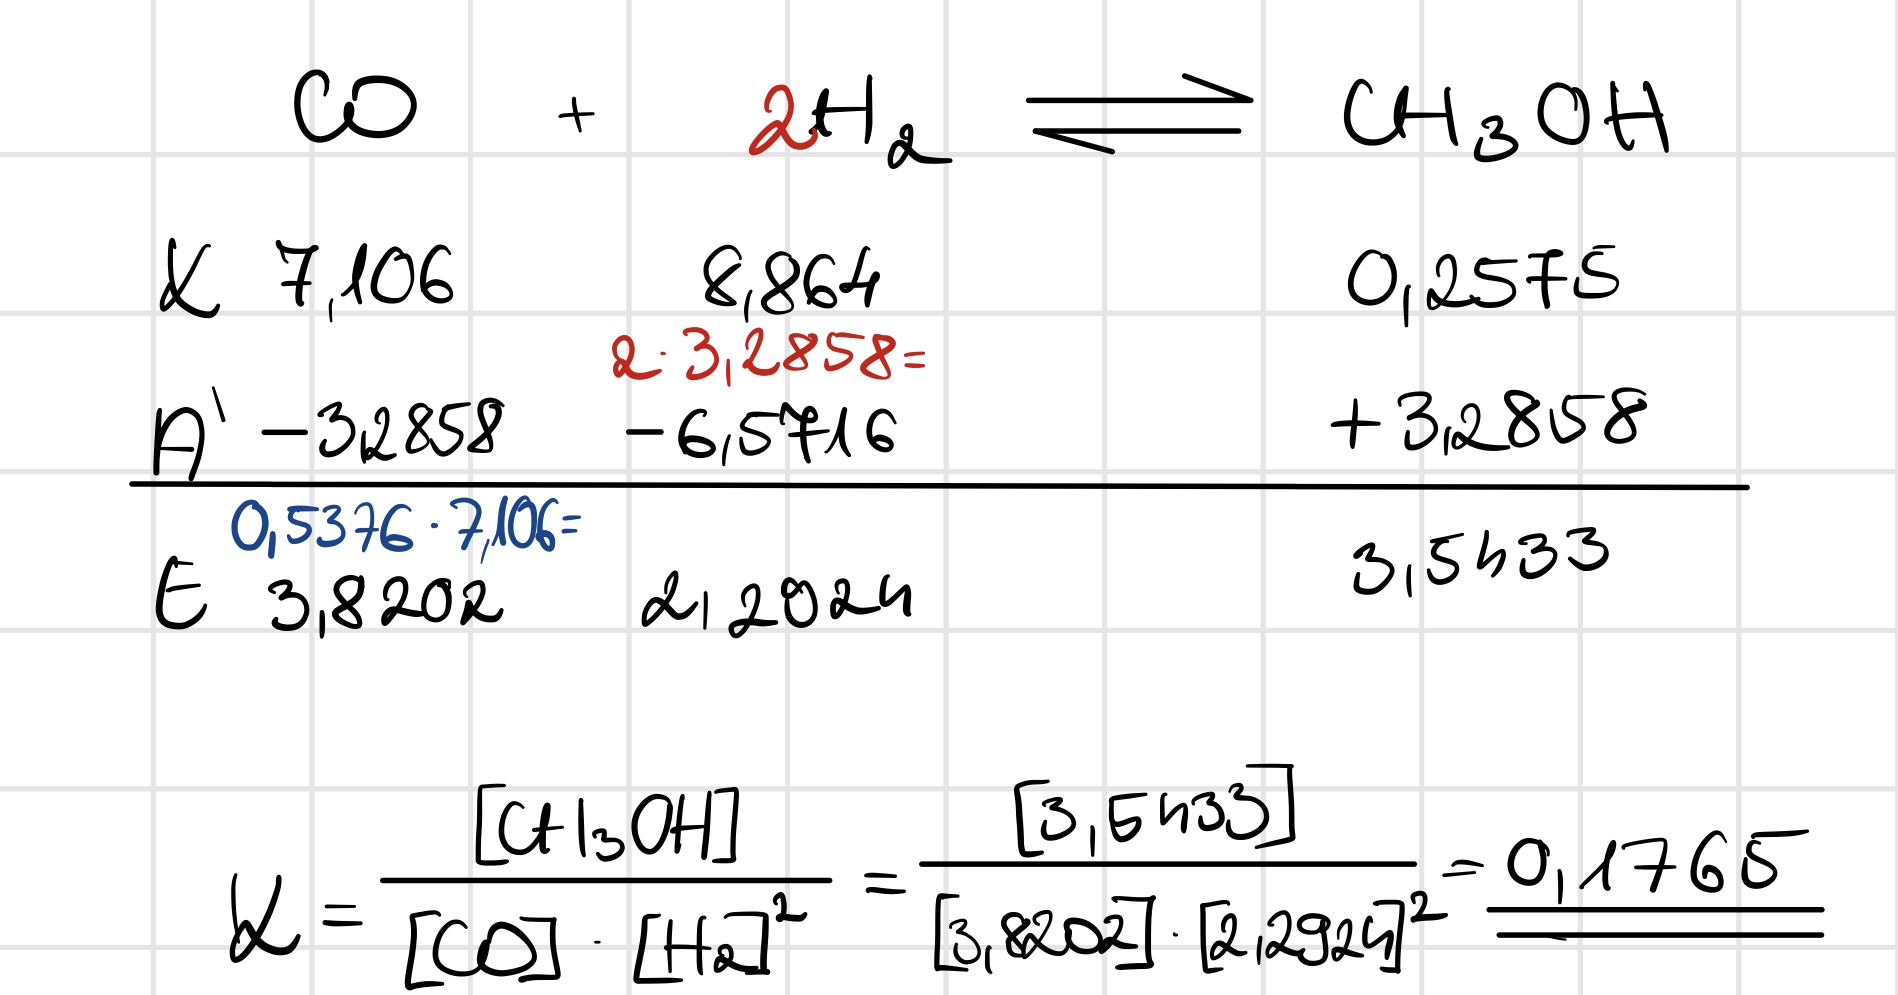 CO + 2H₂ ⇌ CH₃OH
K 7,106 8,864 0,2575
2·3,2858=
A' -3,2858 -6,5716 +3,2858
0,5376·7,106=
E 3,8202 2,2024 3,5433
K = [CH₃OH] / [CO]·[H₂]² = [3,5433] / [3,8202]·[2,2924]² = 0,1765